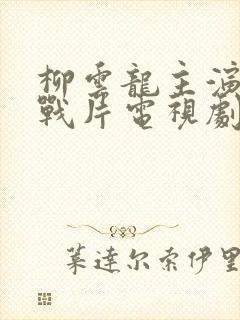 柳雲龍主演
戰片電視劇
葉達尔索伊里